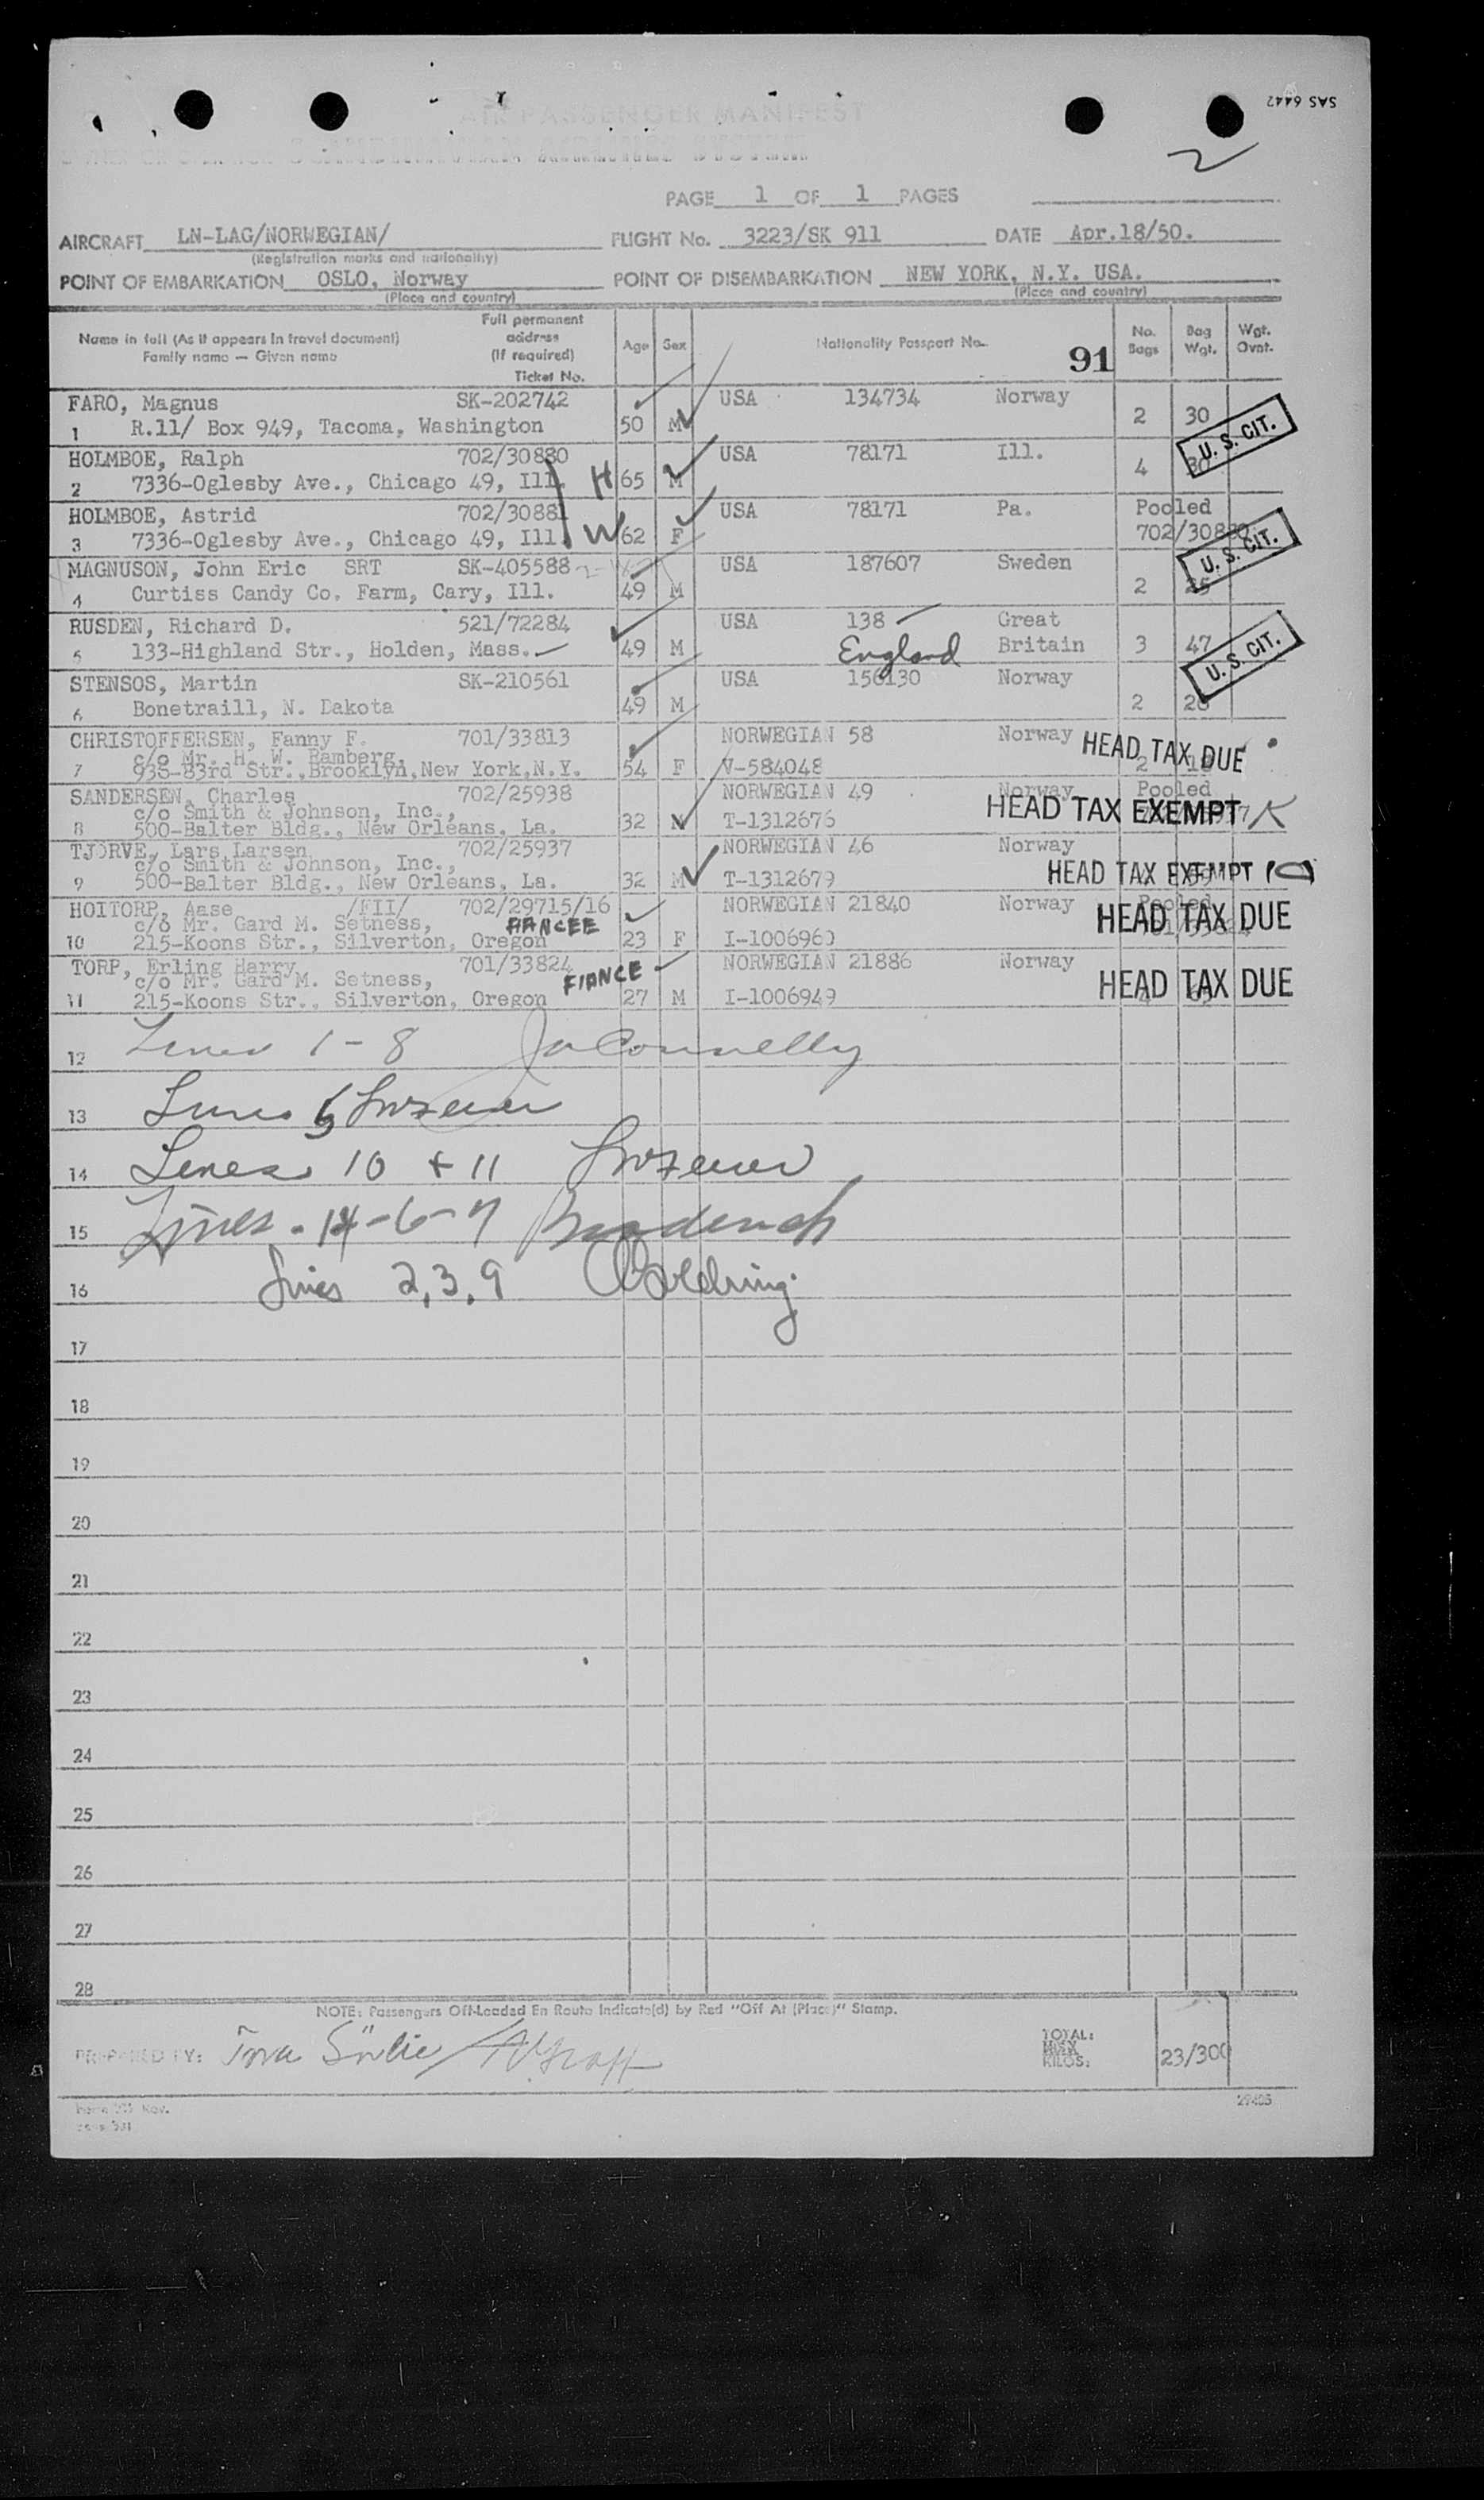 SAS 6442
AIR PASSENGER MANIFEST
2
PAGE 1 OF 1 PAGES
AIRCRAFT LN-LAG/NORWEGIAN/ FLIGHT No. 3223/SK 911 DATE Apr.18/50.
(Registration marks and nationality)
POINT OF EMBARKATION OSLO, Norway POINT OF DISEMBARKATION NEW YORK, N.Y. USA.
(Place and country) (Place and country)
Name in full (As it appears in travel document) Family name — Given name Full permanent address (If required) Ticket No. Age Sex Nationality Passport No. 91 No. Bags Bag Wgt. Wgt. Ovnt.
FARO, Magnus SK-202742 USA 134734 Norway
1 R.11/ Box 949, Tacoma, Washington 50 M 2 30
U. S. CIT.
HOLMBOE, Ralph 702/30880 USA 78171 Ill.
2 7336-Oglesby Ave., Chicago 49, Ill. H 65 M 4 30
HOLMBOE, Astrid 702/30881 USA 78171 Pa. Pooled
3 7336-Oglesby Ave., Chicago 49, Ill. W 62 F 702/30880
U. S. CIT.
MAGNUSON, John Eric SRT SK-405588 USA 187607 Sweden
4 Curtiss Candy Co. Farm, Cary, Ill. 49 M 2
RUSDEN, Richard D. 521/72284 USA 138 Great
5 133-Highland Str., Holden, Mass. 49 M England Britain 3 47
U. S. CIT.
STENSOS, Martin SK-210561 USA 156130 Norway
6 Bonetraill, N. Dakota 49 M 2
CHRISTOFFERSEN, Fanny F. 701/33813 NORWEGIAN 58 Norway HEAD TAX DUE
c/o Mr. H. W. Bamberg,
7 935-83rd Str.,Brooklyn,New York,N.Y. 54 F V-584048 2
SANDERSEN, Charles 702/25938 NORWEGIAN 49 Norway Pooled
c/o Smith & Johnson, Inc., HEAD TAX EXEMPT K
8 500-Balter Bldg., New Orleans, La. 32 M T-1312676
TJORVE, Lars Larsen 702/25937 NORWEGIAN 46 Norway
c/o Smith & Johnson, Inc., HEAD TAX EXEMPT
9 500-Balter Bldg., New Orleans, La. 32 M T-1312679
HOITORP, Aase /FII/ 702/29715/16 NORWEGIAN 21840 Norway Pooled
c/o Mr. Gard M. Setness, FIANCEE HEAD TAX DUE
10 215-Koons Str., Silverton, Oregon 23 F I-1006960
TORP, Erling Harry 701/33824 NORWEGIAN 21886 Norway
c/o Mr. Gard M. Setness, FIANCE HEAD TAX DUE
11 215-Koons Str., Silverton, Oregon 27 M I-1006949
12 Lines 1-8 Connelly
13 Lines 5
14 Lines 10 + 11
15 Lines - 14-6-7
16 Lines 2,3,9 Goldring
17
18
19
20
21
22
23
24
25
26
27
28
NOTE: Passengers Off-Loaded En Route Indicate(d) by Red "Off At (Place)" Stamp.
PREPARED BY: TOTAL: KILOS: 23/300